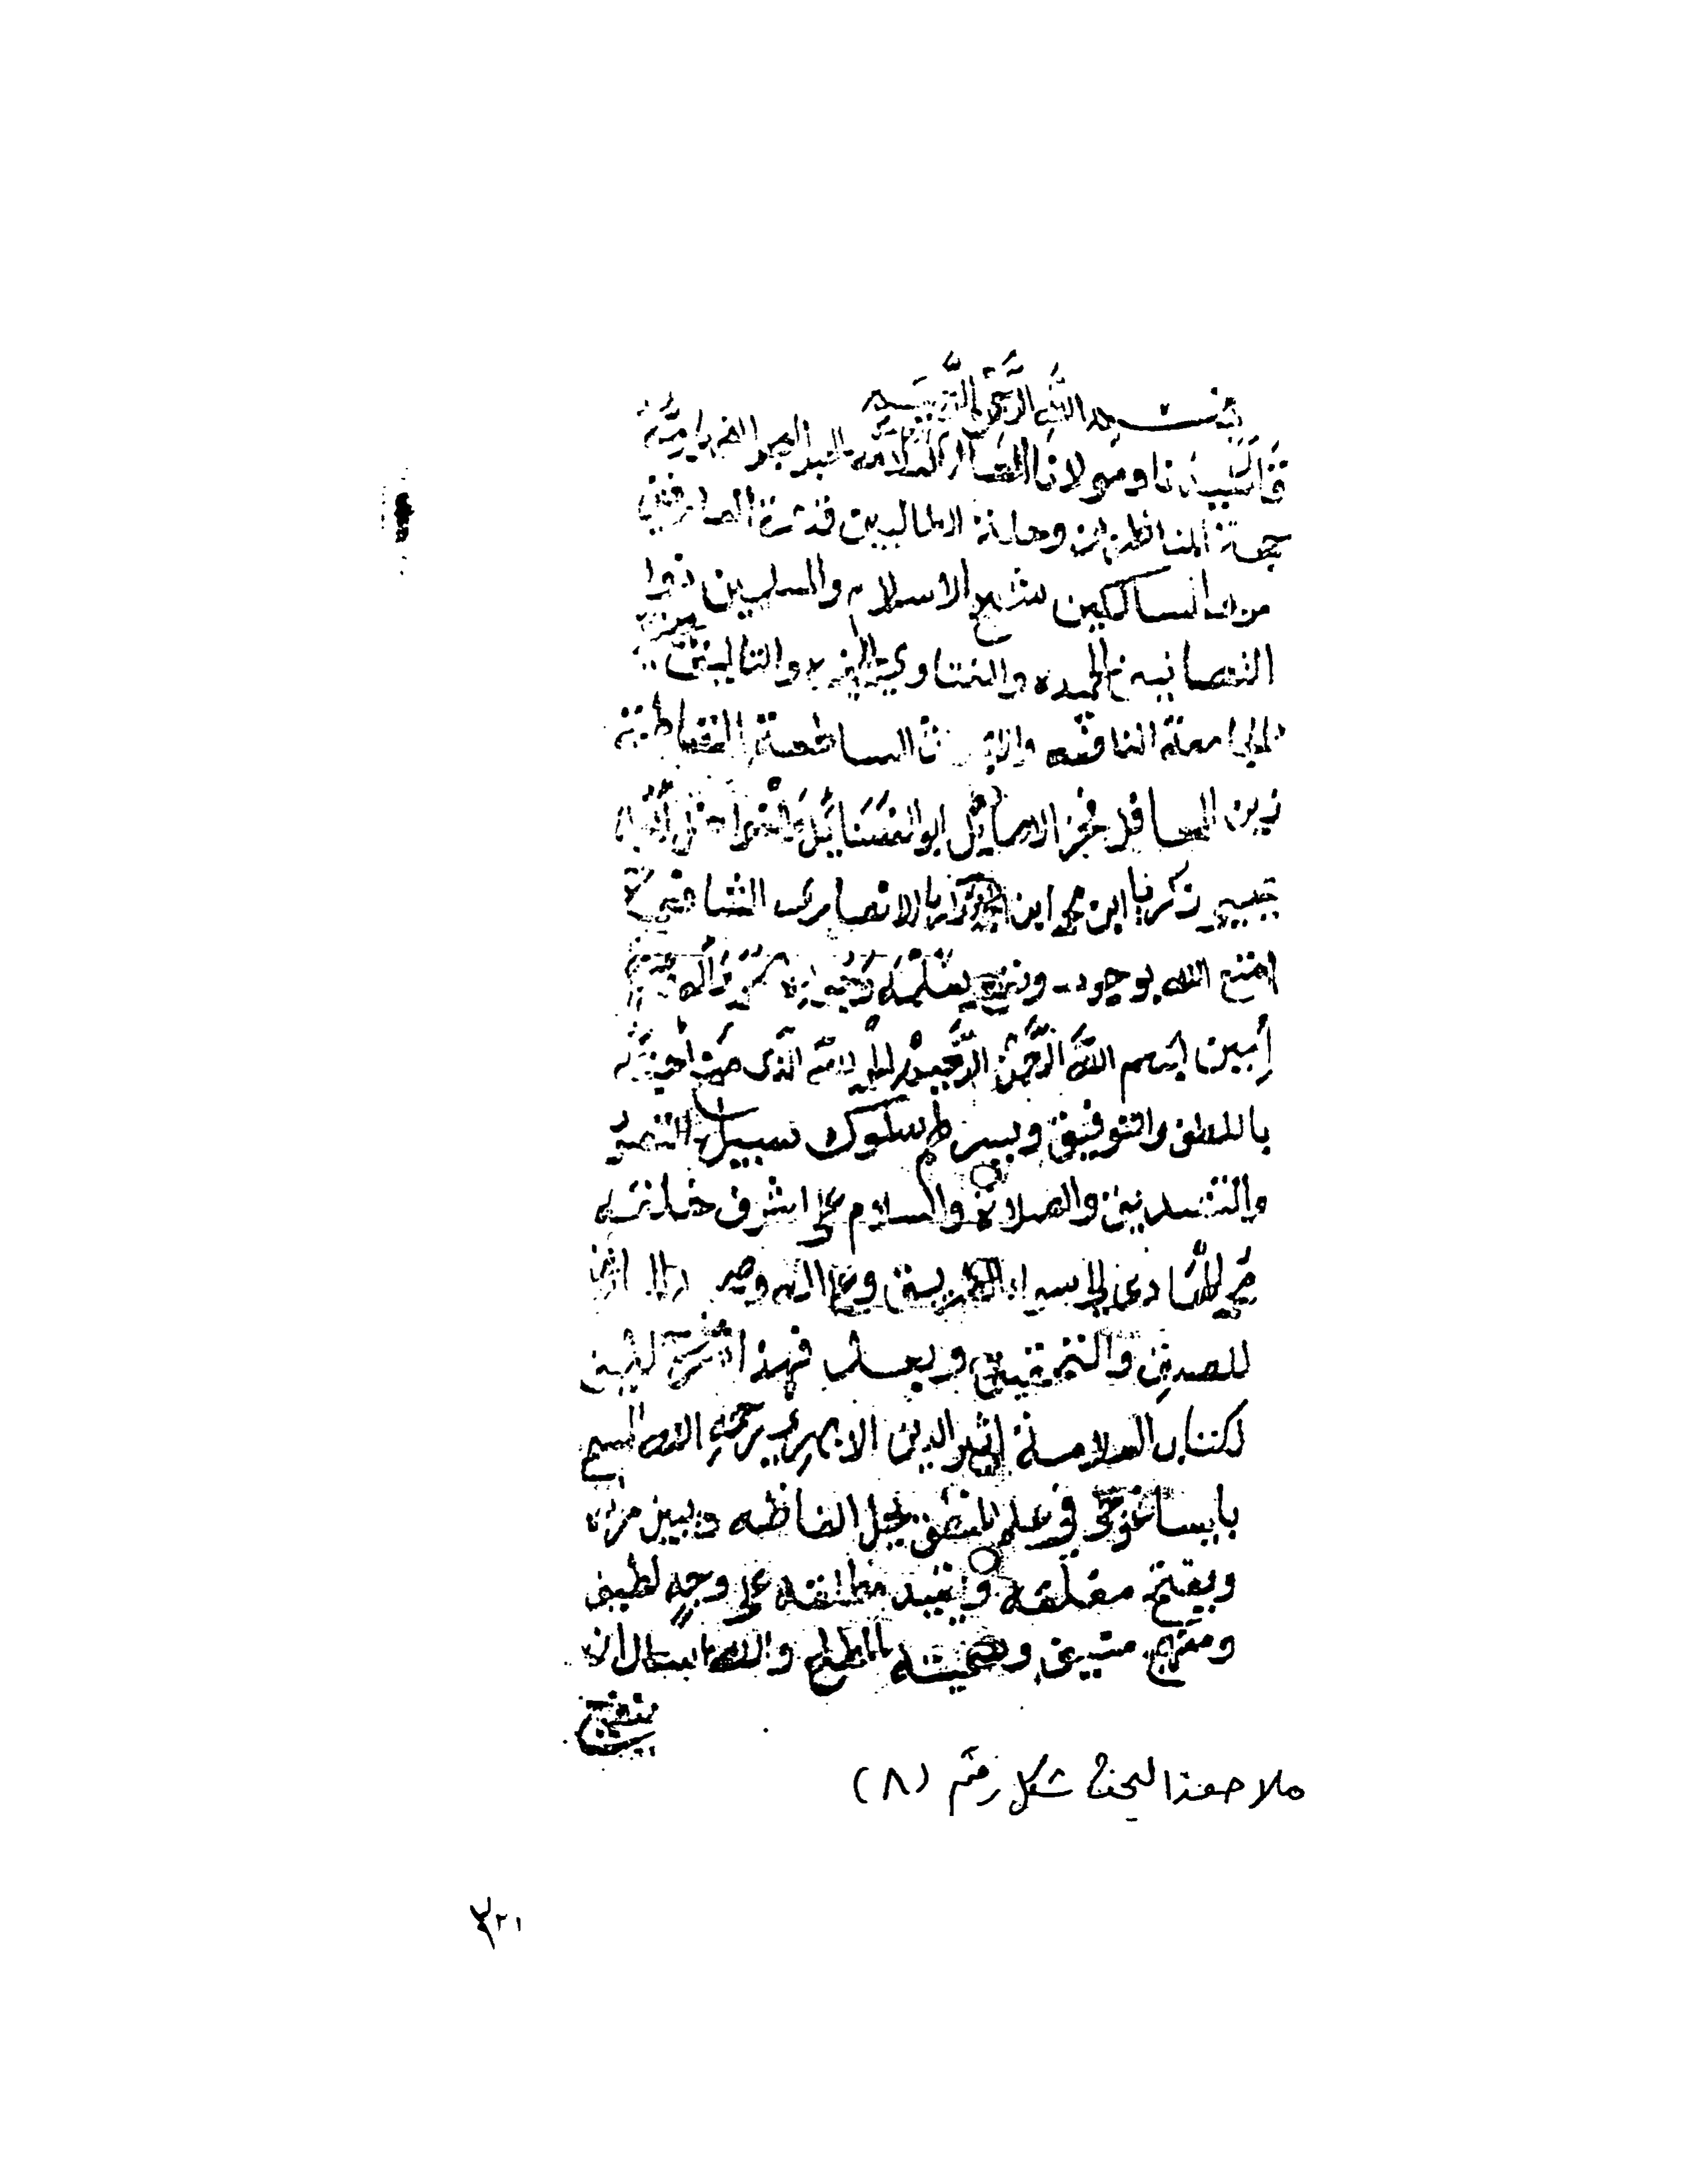 بسم الله الرحمن الرحيم
قال سيدنا ومولانا العالم العلامة الحبر البحر الفهامة
حجة المناظرين وحلة الطالبين قدوة العارفين
مربي السالكين شيخ الاسلام والمسلمين ذوا
التصانيف الحميده والفتاوي والتاليف
الجامعة النافعه الساطعة القاطعة
زين المحافل فخر الاماثل ابو الفضائل
يحيى زكريا ابن محمد ابن زكريا الانصارى الشافعي
امتع الله بوجوده ونفع بعلمه وجوده محمد وآله
أمين بسم الله الرحمن الرحيم الحمد لله الذى منح أحبته
باللطف والتوفيق ويسر لهم سلوك سبيل التصور
والتصديق والصلاة والسلام على اشرف خلقه
محمد الهادى الى سواء الطريق وعلى اله وصحبه
للصدق والتحقيق وبعد فهذا شرح لطيف
لكتاب العلامة اثير الدين الابهري رحمه الله المسمى
بايساغوجي في علم المنطق يحل الفاظه ويبين مراده
ويفتح مغلقه ويقيد مطلقه على وجه لطيف
ومنهج منيف وسميته بالمطلع والله اسال ان
ينفع
ملاحق البحث شكل رقم (٨)
٣٢١